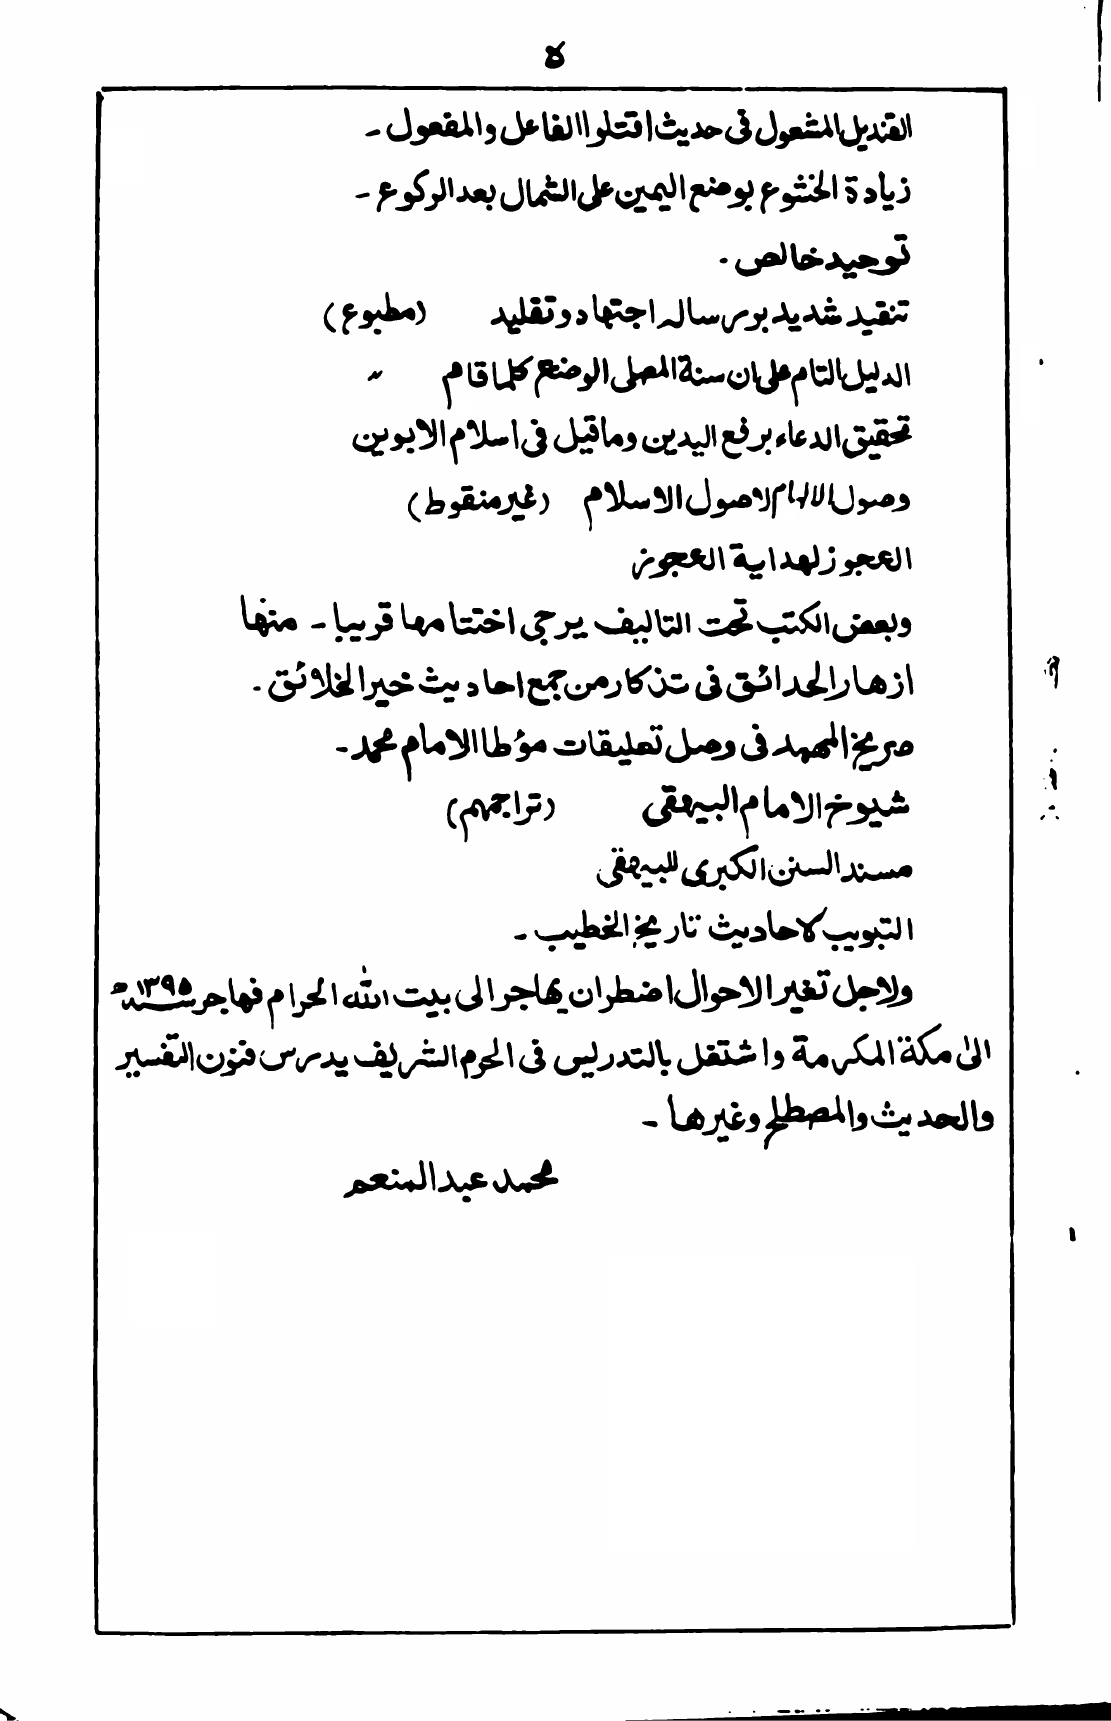 ﻻ
القنديل المشعول فى حديث اقتلوا الفاعل والمفعول ـ
زيادة الخشوع بوضع اليمين على الشمال بعد الركوع ـ
توحيد خالص ـ
تنقيد شديد بر رساله اجتهاد وتقليد (مطبوع)
الدليل التام على ان سنة المصلى الوضع كلما قام 〃
تحقيق الدعاء برفع اليدين وما قيل فى اسلام الابوين
وصول الالهام لاصول الاسلام (غير منقوط)
العجوز لهداية العجوز
وبعض الكتب تحت التاليف يرجى اختتامها قريبا ـ منها
ازهار الحدائق فى تذكار من جمع احاديث خير الخلائق ـ
صريخ الممهد فى وصل تعليقات مؤطا الامام محمد ـ
شيوخ الامام البيهقى (تراجمهم)
مسند السنن الكبرى للبيهقى
التبويب لاحاديث تاريخ الخطيب ـ
ولاجل تغير الاحوال اضطر ان يهاجر الى بيت الله الحرام فهاجر سنه ١٣٩٥ھ
الى مكة المكرمة واشتغل بالتدريس فى الحرم الشريف يدرس فنون التفسير
والحديث والمصطلح وغيرها ـ
محمد عبد المنعم